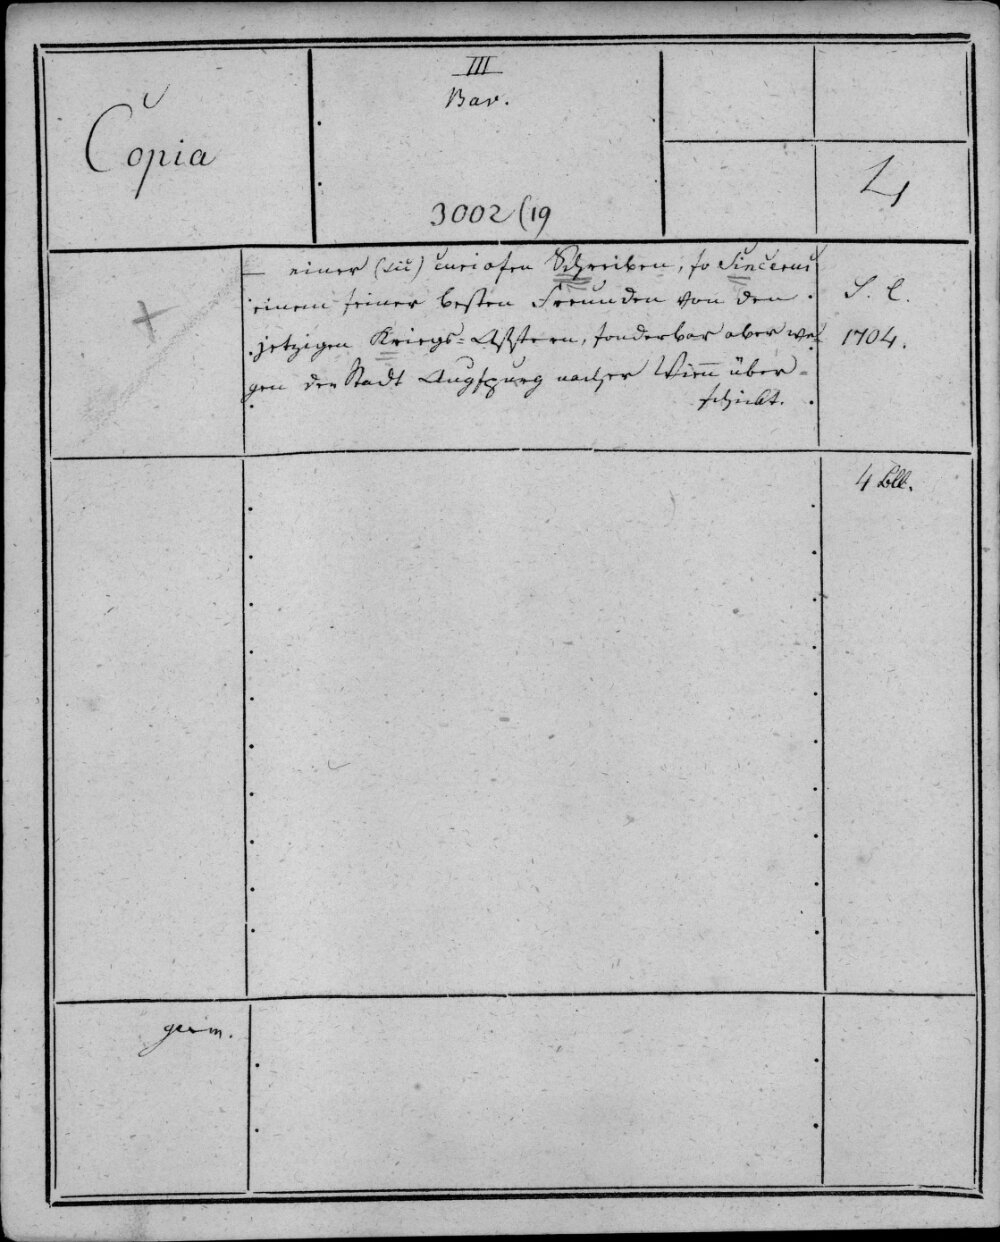 Copia
III
Bav.
3002 (19
4
— einer (sic) curiosen Schreiben, so Sincerus
einem seiner besten Freunden von den
jetzigen Kriegs=Affairen, sonderbar aber we=
gen der Stadt Augspurg nacher Wien über=
schickt.
S. l.
1704.
4 Bll.
germ.